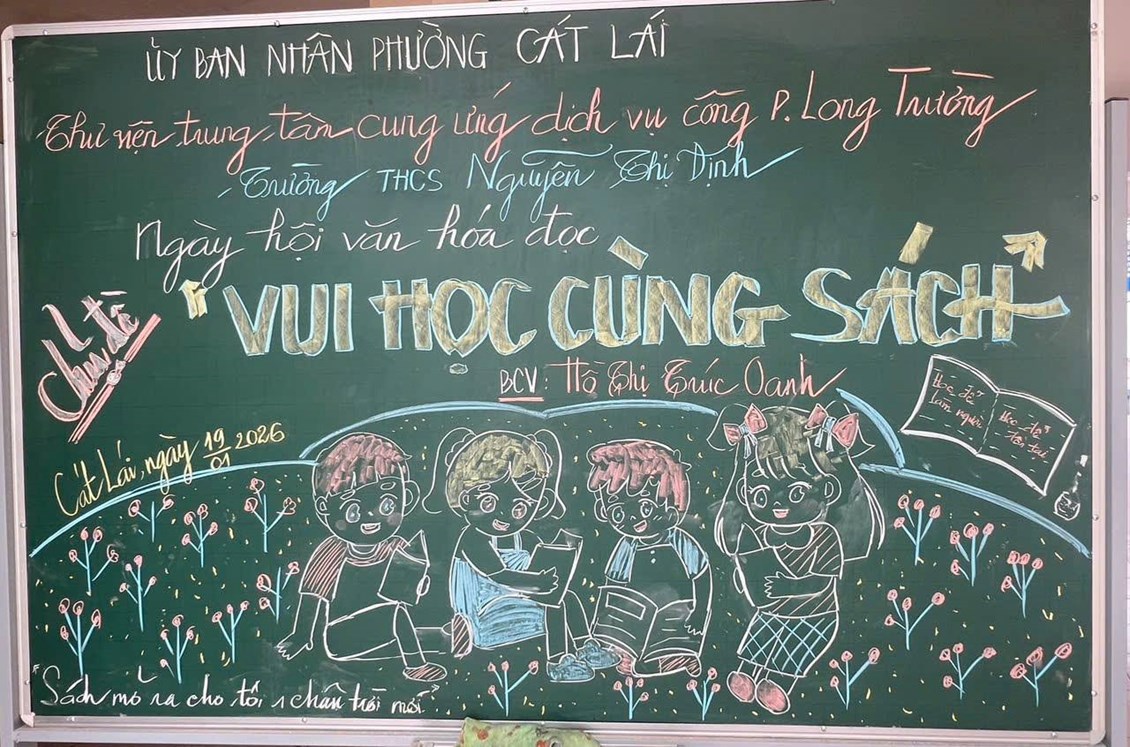 ỦY BAN NHÂN PHƯỜNG CÁT LÁI
Thư viện trung tâm cung ứng dịch vụ công P. Long Trường
Trường THCS Nguyễn Thị Định
Ngày hội văn hóa đọc
Chủ đề
"VUI HỌC CÙNG SÁCH"
BCV: Hồ Thị Trúc Oanh
Cát Lái, ngày 19/01 2026
Học để làm người
Học để
"Sách mở ra cho tôi 1 chân trời mới"